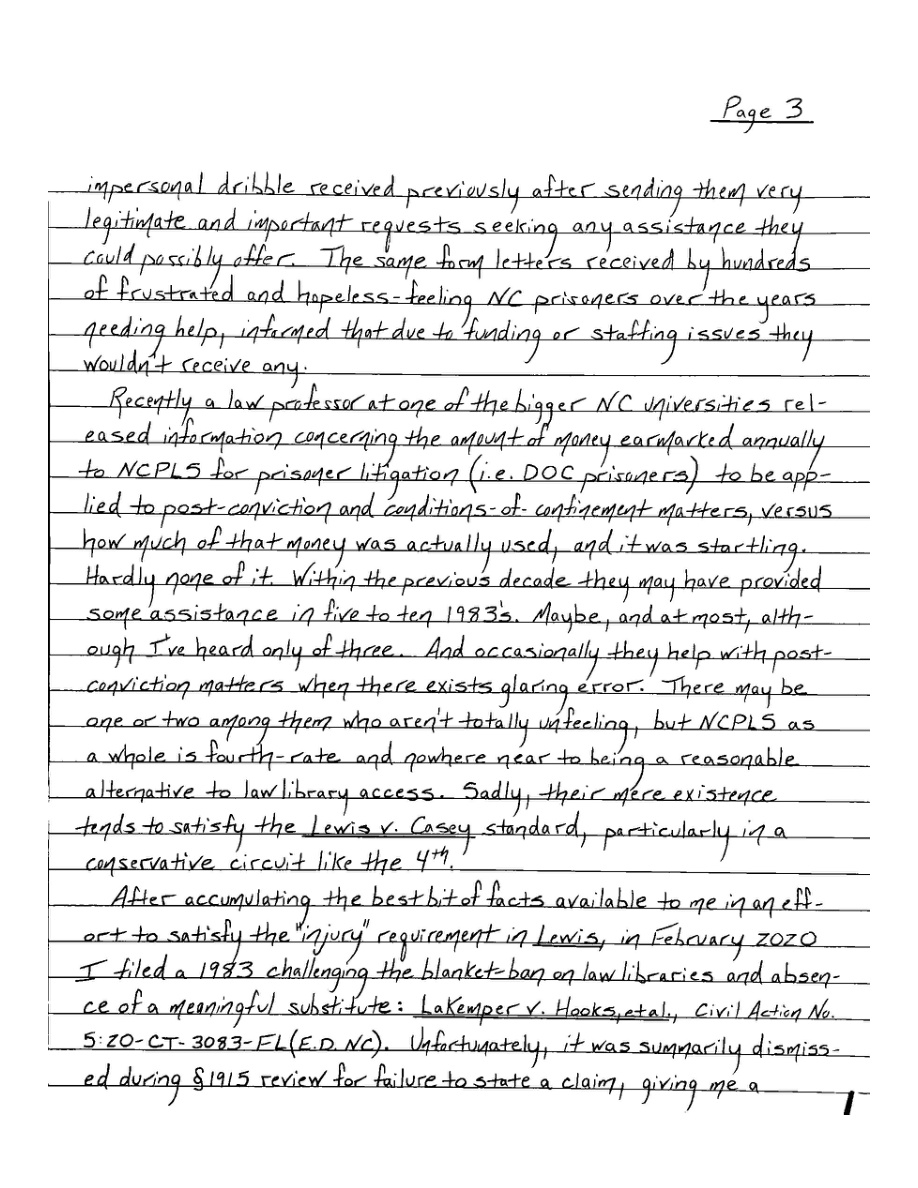 Page 3
impersonal dribble received previously after sending them very
legitimate and important requests seeking any assistance they
could possibly offer. The same form letters received by hundreds
of frustrated and hopeless-feeling NC prisoners over the years
needing help, informed that due to funding or staffing issues they
wouldn't receive any.
Recently a law professor at one of the bigger NC universities rel-
eased information concerning the amount of money earmarked annually
to NCPLS for prisoner litigation (i.e. DOC prisoners) to be app-
lied to post-conviction and conditions-of-confinement matters, versus
how much of that money was actually used, and it was startling.
Hardly none of it. Within the previous decade they may have provided
some assistance in five to ten 1983's. Maybe, and at most, alth-
ough I've heard only of three. And occasionally they help with post-
conviction matters when there exists glaring error. There may be
one or two among them who aren't totally unfeeling, but NCPLS as
a whole is fourth-rate and nowhere near to being a reasonable
alternative to law library access. Sadly, their mere existence
tends to satisfy the Lewis v. Casey standard, particularly in a
conservative circuit like the 4th.
After accumulating the best bit of facts available to me in an eff-
ort to satisfy the "injury" requirement in Lewis, in February 2020
I filed a 1983 challenging the blanket-ban on law libraries and absen-
ce of a meaningful substitute: LaKemper v. Hooks, et al., Civil Action No.
5:20-CT-3083-FL (E.D. NC). Unfortunately, it was summarily dismiss-
ed during §1915 review for failure to state a claim, giving me a